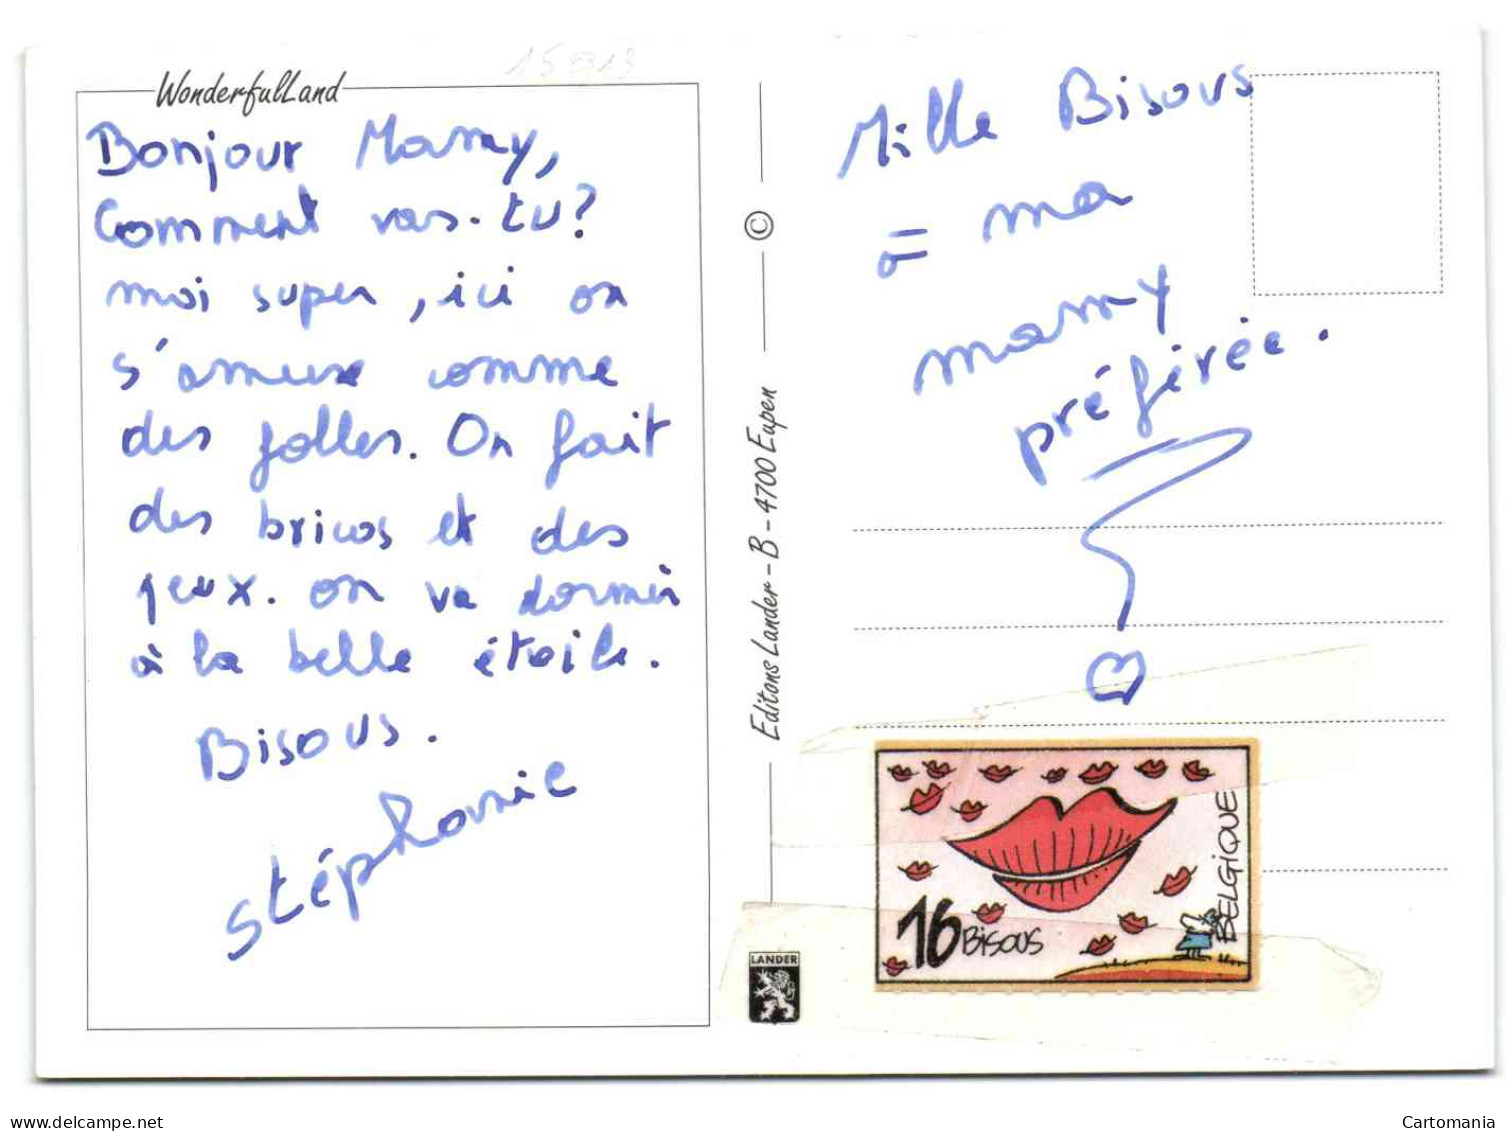 15 919
WonderfulLand
Bonjour Mamy,
Comment vas-tu?
moi super, ici on
s'amuse comme
des folles. On fait
des bricos et des
jeux. on va dormir
à la belle étoile.
Bisous.
stéphanie
© Editons Lander - B - 4700 Eupen
LANDER
Mille Bisous
à ma
mamy
préférée.
16 Bisous
BELGIQUE
delcampe.net
Cartomania